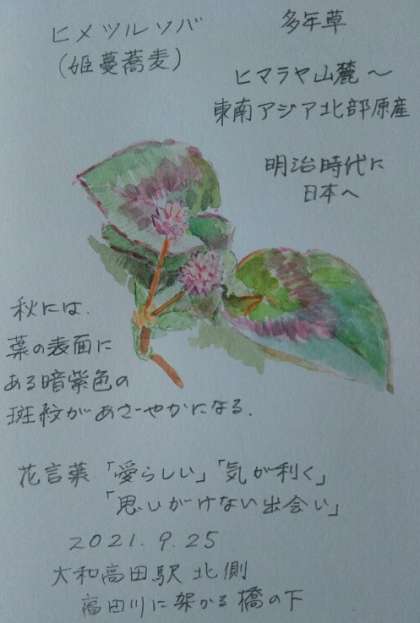 ヒメツルソバ
(姫蔓蕎麦)
多年草
ヒマラヤ山麓～
東南アジア北部原産
明治時代に
日本へ
秋には、
葉の表面に
ある暗紫色の
斑紋があざやかになる.
花言葉「愛らしい」「気が利く」
「思いがけない出会い」
2021.9.25
大和高田駅 北側
高田川に架かる橋の下